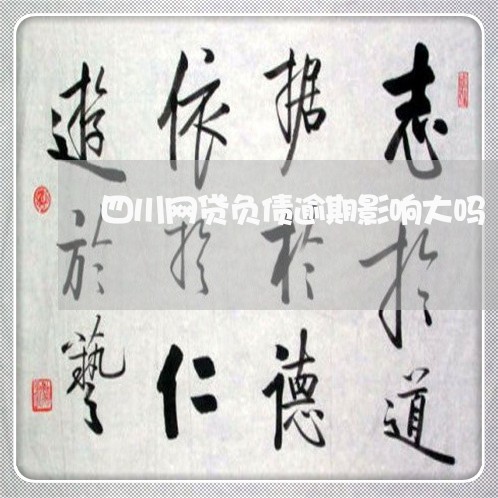 四川网贷负债逾期影响大吗
志於道
据於德
依於仁
遊於藝